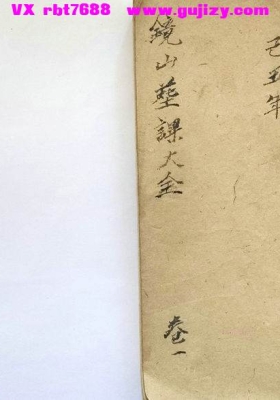 VX rbt7688 www.gujizy.com
己丑年
鏡山塾課大全
卷一